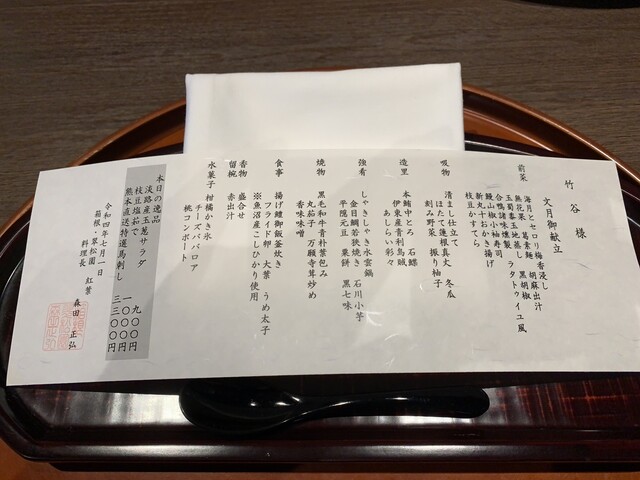 竹谷 様
文月御献立
前菜
海月とセロリ梅香浸し
無花果 葛素麺 胡麻出汁
玉蜀黍玉地蒸し 黒胡椒
合鴨諸味燻製 ラタトゥイユ風
鰻山椒小袖寿司
新丸十おかき揚げ
枝豆かすてら
吸物
清まし仕立て
ほたて蓮根真丈 冬瓜
刻み野菜 振り柚子
造里
本鮪中とろ 石鰈
伊東産青利烏賊
あしらい彩々
強肴
しゃきしゃき水雲鍋
金目鯛若狭焼き 石川小芋
平隠元豆 粟餅 黒七味
焼物
黒毛和牛青朴葉包み
丸茄子 万願寺茸炒め
香味味噌
食事
揚げ鱧御飯釜炊き
フライド卵 大葉 うめ太子
※魚沼産こしひかり使用
香物 盛合せ
留椀 赤出汁
水菓子 柑橘かき氷
チーズババロア
桃コンポート
本日の逸品
淡路産玉葱サラダ 九〇〇円
枝豆塩茹で 一〇〇〇円
熊本直送特選馬刺し 三三〇〇円
令和四年七月一日
箱根・翠松園 紅葉
料理長 森田 正弘